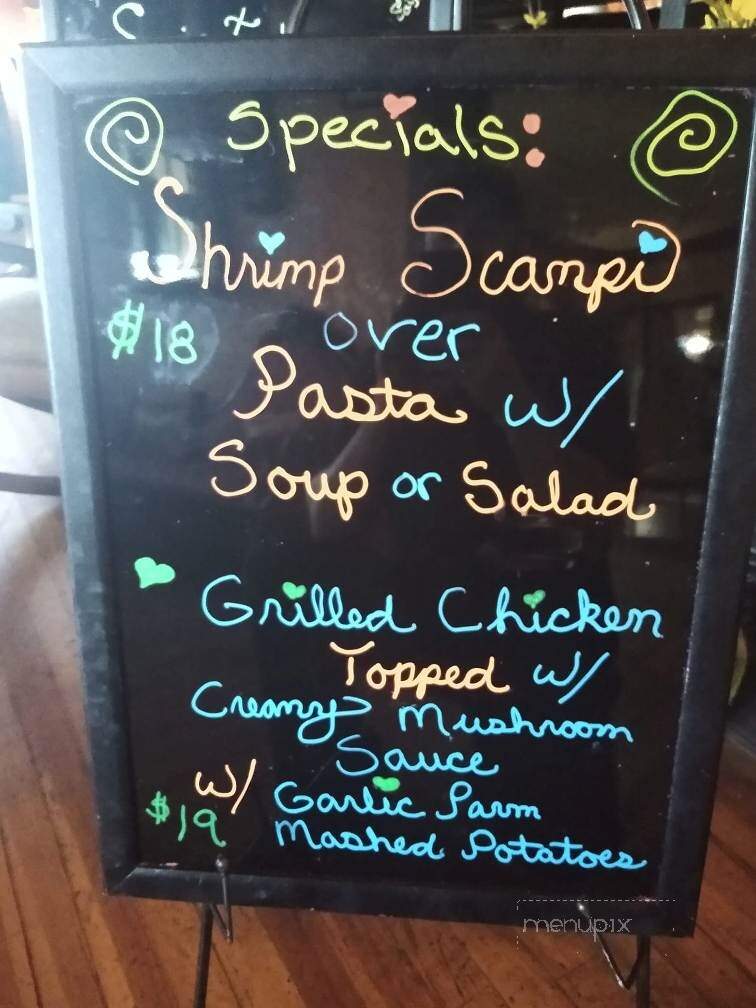 Specials:
Shrimp Scampi
$18 over
Pasta w/
Soup or Salad
Grilled Chicken
Topped w/
Creamy Mushroom
Sauce
w/ Garlic Parm
$19 Mashed Potatoes
menupix